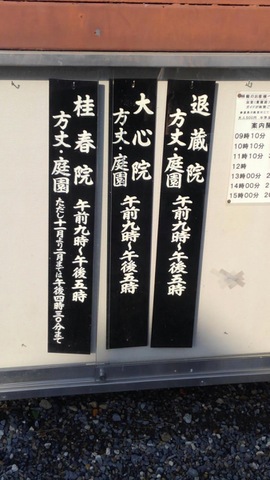 退蔵院
方丈・庭園
午前九時〜午後五時
大心院
方丈・庭園
午前九時〜午後五時
桂春院
方丈・庭園
午前九時〜午後五時
ただし十一月より二月までは午後四時三〇分まで
案内
09時10分
10時10分
11時10分
12時
13時00分
14時00分
15時00分